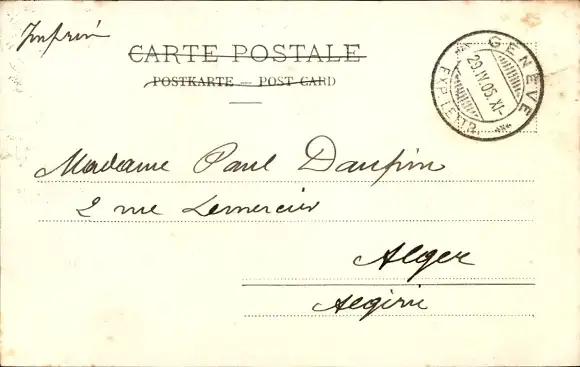 Imprimé
CARTE POSTALE
POSTKARTE — POST CARD
GENÈVE
29.IV.05.XI-
EXP. LETTR.
Madame Paul Daufrin
2 rue Lemercier
Alger
Algérie